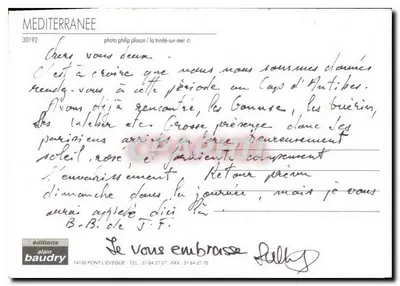 MEDITERRANEE
30192
photo philip plisson / la trinité-sur-mer ©
Chers vous deux.
C'est à croire que nous nous sommes donnés
rendez-vous à cette période au Cap d'Antibes.
Avons déjà rencontré, les les Guérin,
les etc Grosse présence donc des
parisiens heureusement
soleil, rose, et
l'envahissement, Retour prévu
dimanche dans la journée, mais je vous
aurai appelé dès
B.B. de J.F.
Je vous embrasse
éditions
alain
baudry
14130 PONT-L'EVEQUE - TEL. 31 64 07 37 FAX. 31 64 07 76